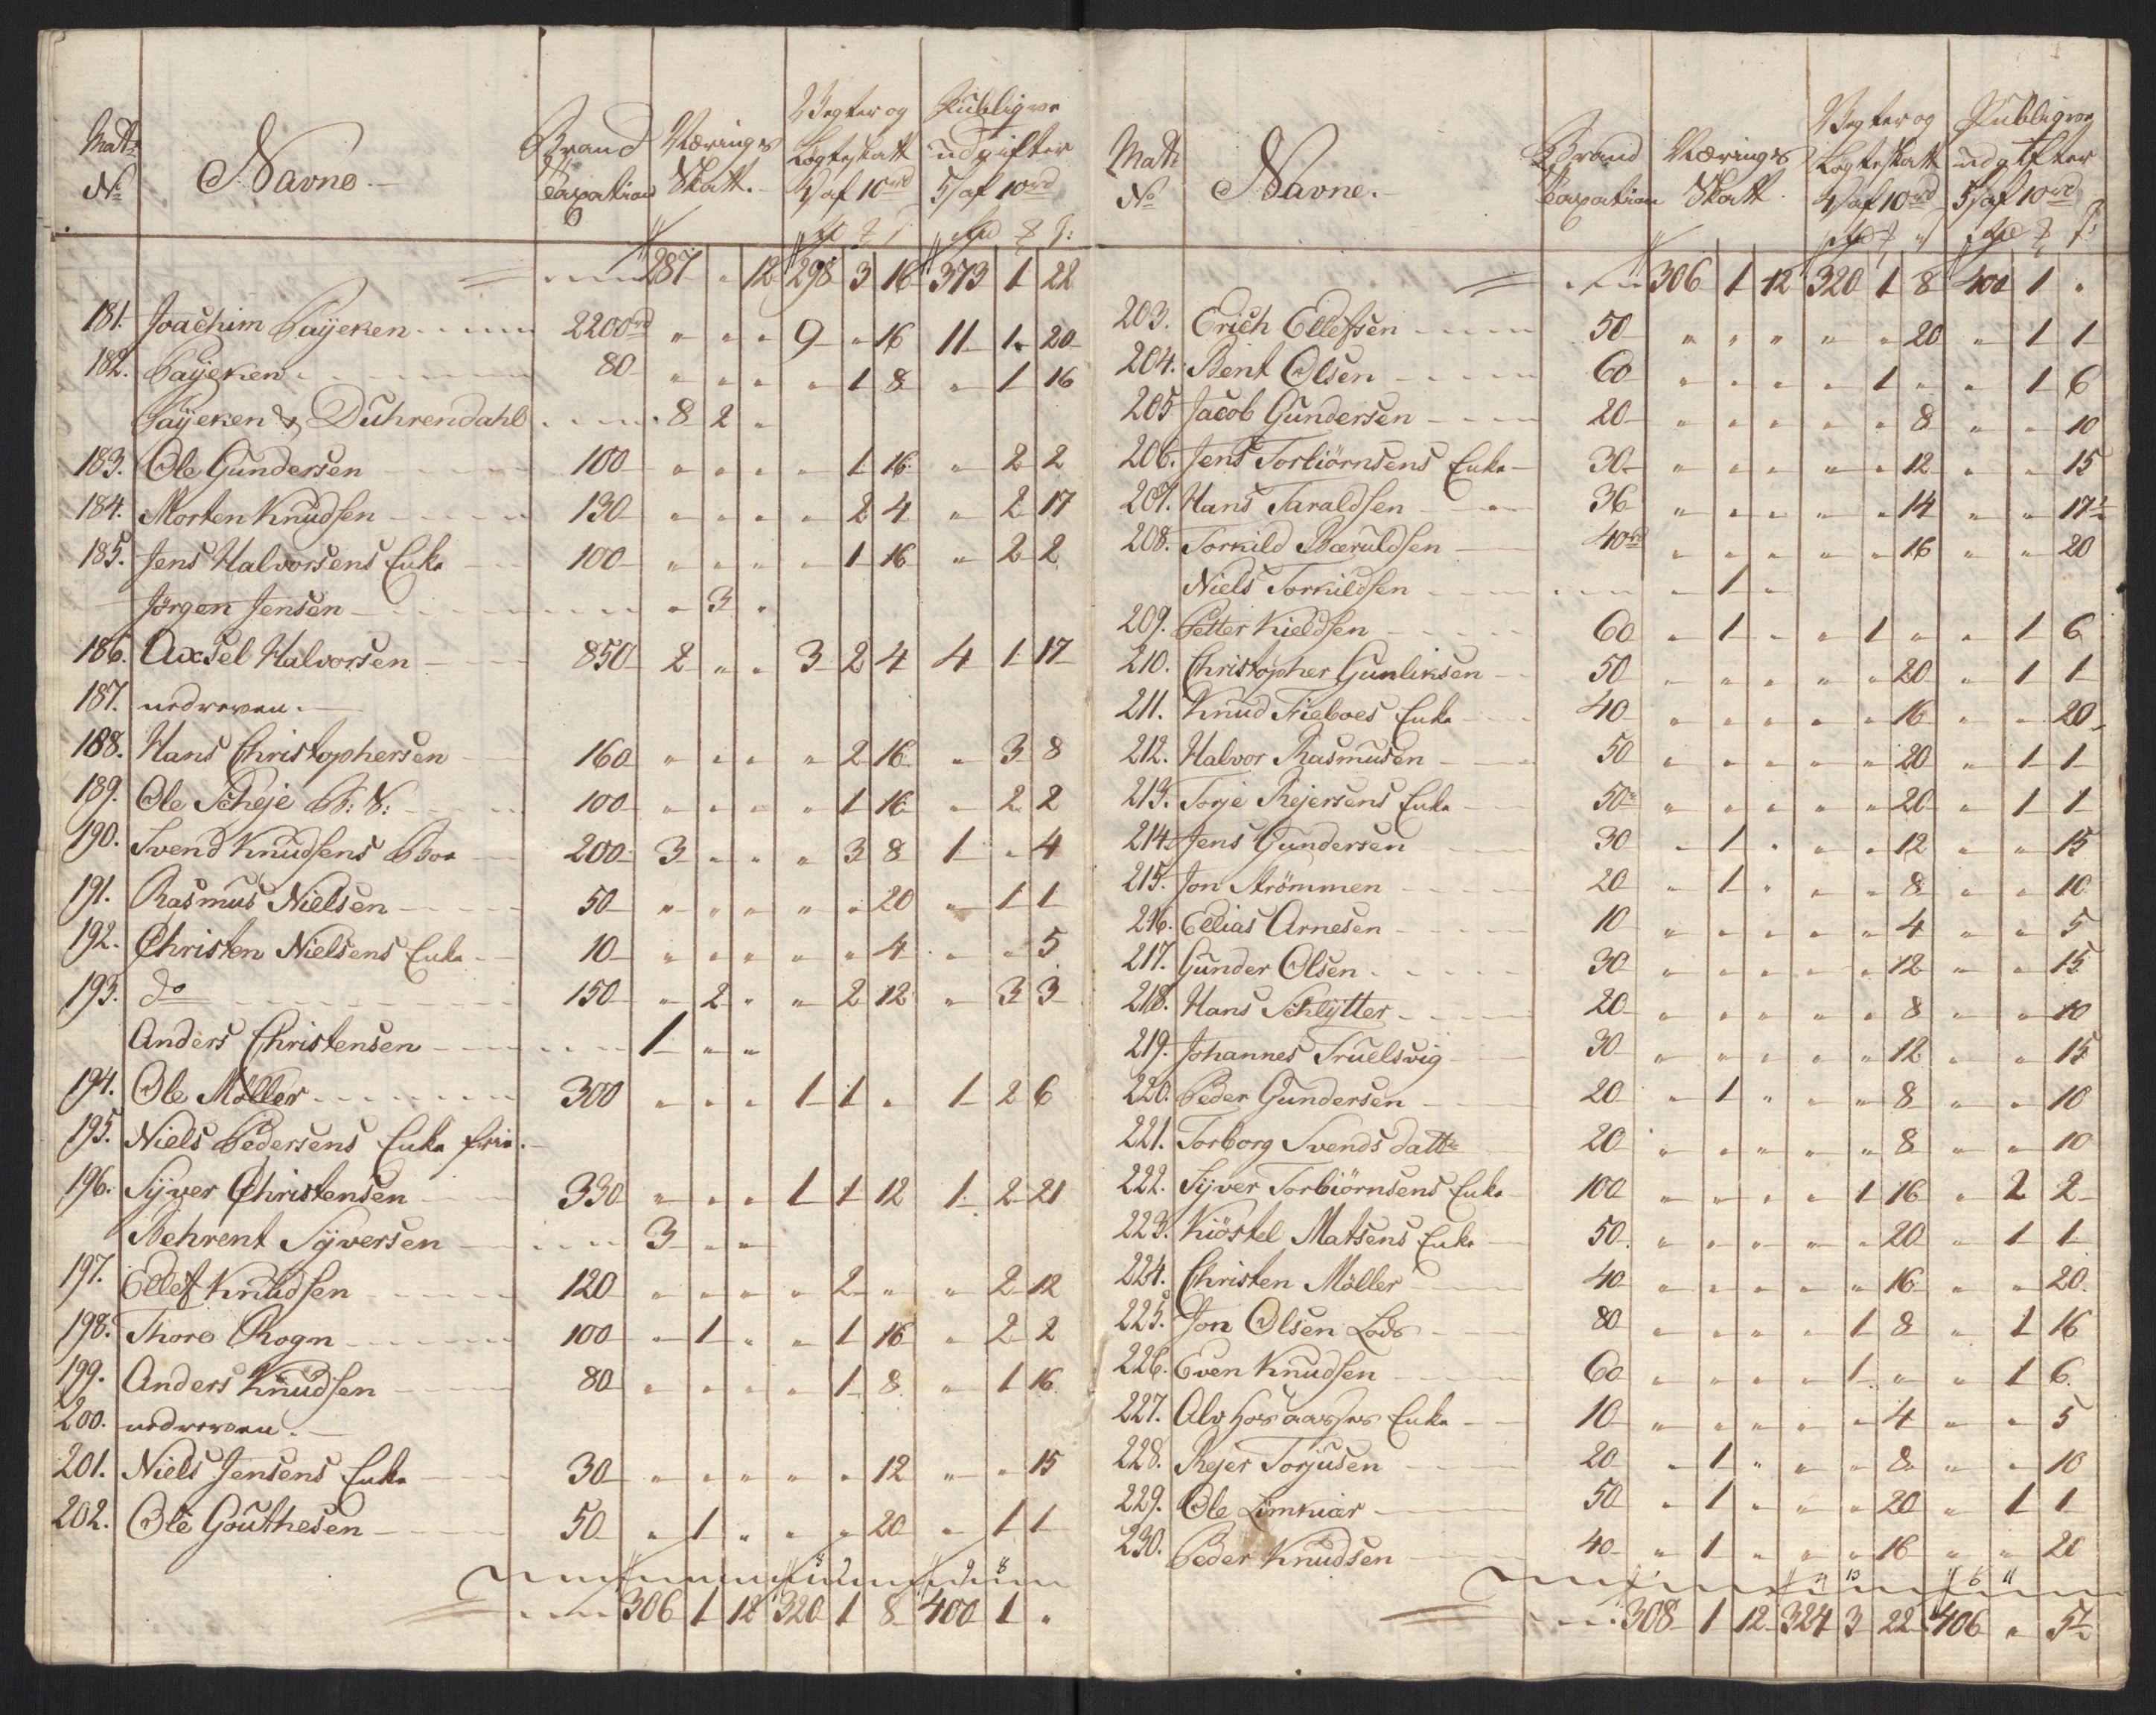 Matr No Navne Brand Taxation Nærings Skatt Vegter og Løgteskatt 4/ af 10rd Publiqve udgifter 5/ af 10rd
287 " 12 298 3 16 373 1 22
181. Joachim Paÿeken 2200rd " " " 9 " 16 11 1 20
182. Paÿeken 80 " " " " 1 8 " 1 16
Paÿeken & Duhrendahl 8 2 "
183. Ole Gundersen 100 " " " " 1 16 " 2 2
184. Morten Knudsen 130 " " " " 2 4 " 2 17
185. Jens Halvorsens Enke 100 " " " " 1 16 " 2 2
Jörgen Jensen " 3 "
186. Axsel Halvorsen 850 2 " " 3 2 4 4 1 17
187. nedreven.
188. Hans Christophersen 160 " " " " 2 16 " 3 8
189. Ole Scheje 100 " " " " 1 16 " 2 2
190. Svend Knudsens Boe 200 3 " " " 3 8 1 " 4
191. Rasmus Nielsen 50 " " " " " 20 " 1 1
192. Christen Nielsens Enke 10 " " " " " 4 " " 5
193. do 150 " 2 " " 2 12 " 3 3
Anders Christensen 1 " "
194. Ole Möller 300 " " " 1 1 " 1 2 6
195. Niels Pedersens Enke frie.
196. Sÿver Christensen 330 " " " 1 1 12 1 2 21
Behrent Sÿversen 3 " "
197. Ellef Knudsen 120 " " " " 2 " " 2 12
198. Thore Rogn 100 " 1 " " 1 16 " 2 2
199. Anders Knudsen 80 " " " " 1 8 " 1 16
200. nedreven.
201. Niels Jensens Enke 30 " " " " " 12 " " 15
202. Ole Gouthesen 50 " 1 " " " 20 " 1 1
306 1 12 320 1 8 400 1 "
Matr No Navne. Brand Taxation Nærings Skatt Vegter og Løgteskatt 4/ af 10rd Publiqve udgifter 5/ af 10rd
306 1 12 320 1 8 400 1 "
203. Erich Ellefssen 50 " " " " " 20 " 1 1
204. Bent Olsen 60 " " " " 1 " " 1 6
205 Jacob Gundersen 20 " " " " " 8 " " 10
206. Jens Torbiörnsens Enke 30 " " " " " 12 " " 15
207. Hans Taraldsen 36 " " " " " 14 " " 17½
208. Torkild Bæruldsen 40rd " " " " " 16 " " 20
Niels Torkildsen " 1 "
209. Petter Kieldsen 60 " 1 " " 1 " " 1 6
210. Christopher Gunliksen 50 " " " " " 20 " 1 1
211. Knud Frieboes Enke 40 " " " " " 16 " " 20
212. Halvor Rasmusen 50 " " " " " 20 " 1 1
213. Torje Rejersens Enke 50 " " " " " 20 " 1 1
214. Jens Gundersen 30 " 1 " " " 12 " " 15
215. Jon Strömmen 20 " 1 " " " 8 " " 10
216. Ellias Arnesen 10 " " " " " 4 " " 5
217. Gunder Olsen 30 " " " " " 12 " " 15
218. Hans Schlÿtter 20 " " " " " 8 " " 10
219. Johannes Truelsvig 30 " " " " " 12 " " 15
220. Peder Gundersen 20 " 1 " " " 8 " " 10
221. Torborg Svends datt 20 " " " " " 8 " " 10
222. Sÿver Torbiörnsens Enke 100 " " " " 1 16 " 2 2
223. Kiöstel Matsens Enke 50 " " " " " 20 " 1 1
224. Christen Möller 40 " " " " " 16 " " 20
225. Jon Olsen Lods 80 " " " " 1 8 " 1 16
226. Even Knudsen 60 " " " " 1 " " 1 6
227. Enke 10 " " " " " 4 " " 5
228. Rejer Torjusen 20 " 1 " " " 8 " " 10
229. Ole Limkiær 50 " 1 " " " 20 " 1 1
230. Peder Knudsen 40 " 1 " " " 16 " " 20
308 1 12 324 3 22 406 " 5½